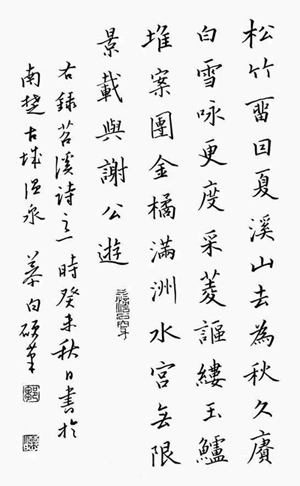 松竹畱囙夏溪山去為秋久賡
白雪咏更度采菱謳縷玉鱸
堆案團金橘滿洲水宮无限
景載與謝公遊
右録苕溪詩之一時癸未秋日書於
南楚古城温泉慕白